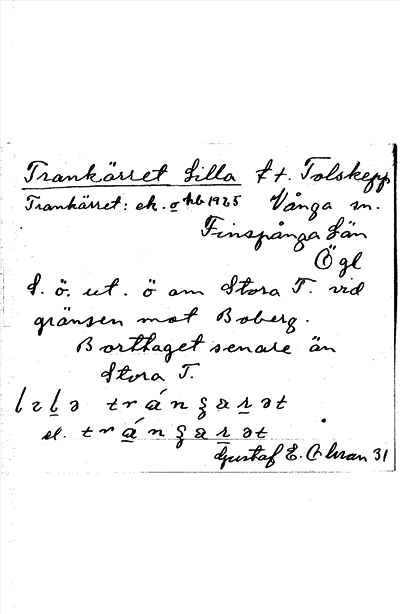 Trankärret Lilla f.t. Tolskepp
Trankärret: ek. o hb 1925 Vånga sn.
Finspånga Län
Ög l
L. ö. ut. ö om Stora T. vid
gränsen mot Boberg.
Borttaget senare än
Stora T.
el.
Gustaf E. O:kvan 31